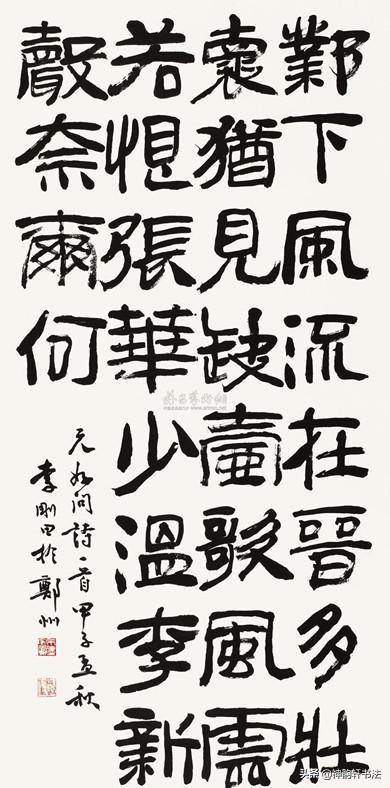 鄴下風流在晉多壯
褱猶見缺壺歌風雲
若恨張華少溫李新
聲奈爾何
元好问詩一首甲子孟秋
李剛田於鄭州
头条@神韵轩书法